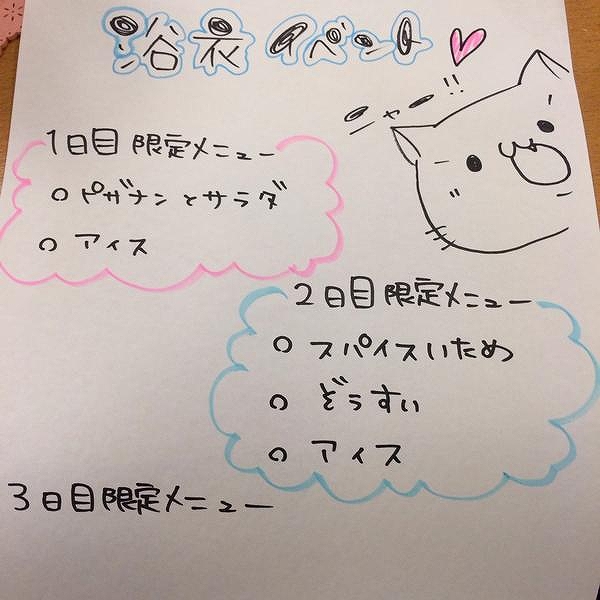 浴衣イベント
ニャー!!
1日目限定メニュー
○ ピザナンとサラダ
○ アイス
2日目限定メニュー
○ スパイスいため
○ ぞうすい
○ アイス
3日目限定メニュー